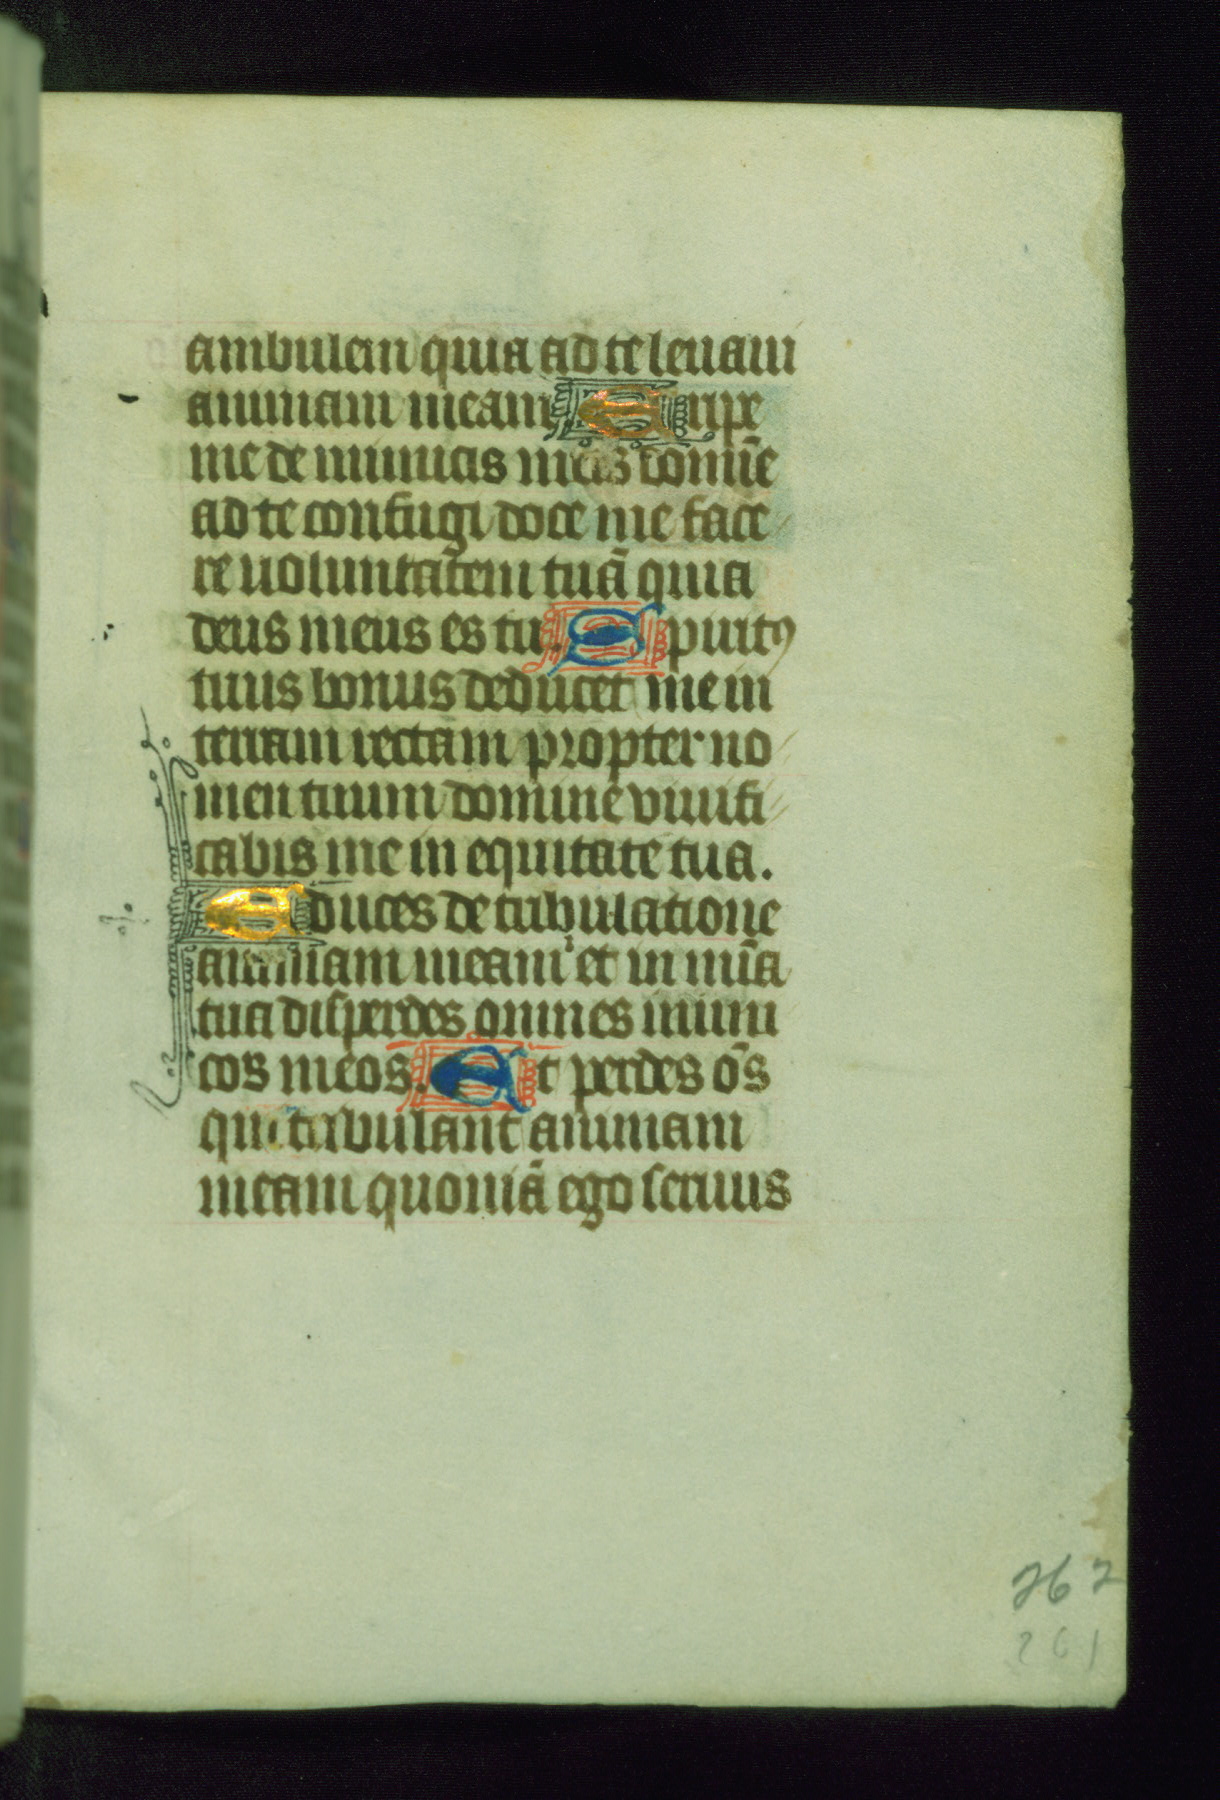 ambulem quia ad te leuaui
animam meam Eripe
me de inimicis meis domīe
ad te confugi doce me face
re uoluntatem tuā quia
deus meus es tu. Spiritꝰ
tuus bonus deducet me in
terram rectam propter no
men tuum domine viuifi
cabis me in equitate tua.
Educes de tribulatione
animam meam et in mīa
tua disperdes omnes inimi
cos meos. Et perdes oēs
qui tribulant animam
meam quoniā ego seruus
262
261